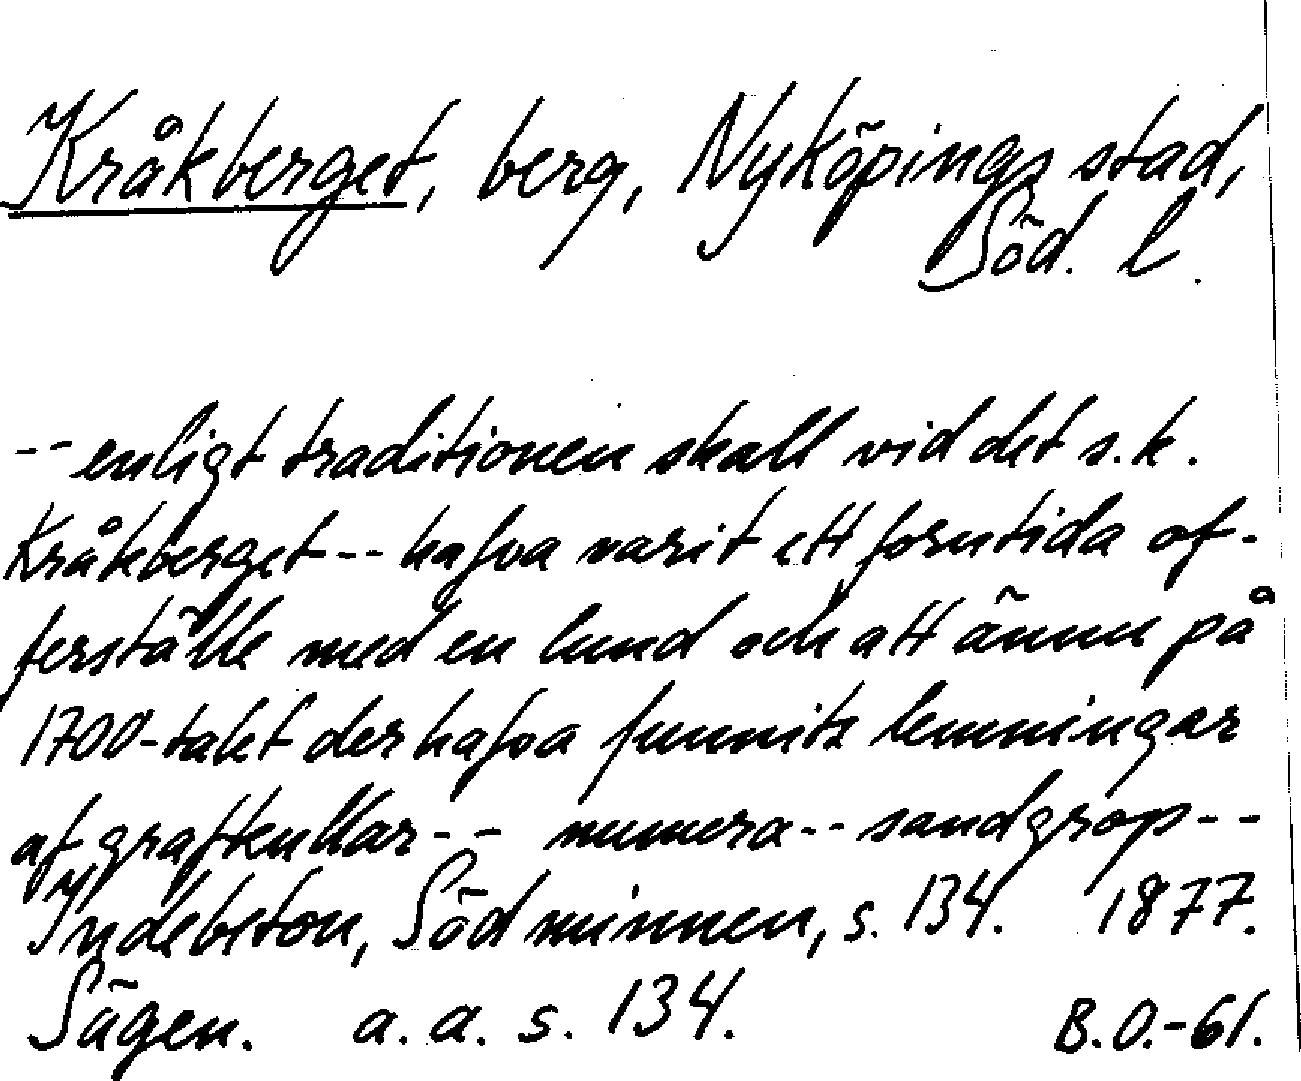 Kråkberget, berg, Nyköpings stad,
Söd. l.
-- enligt traditionen skall vid det s.k.
Kråkberget -- hafva varit ett forntida of-
ferställe med en lund och att ännu på
1700-talet der hafva funnits lemningar
af grafkullar -- numera -- sandgrop --
Indebetou, Söd minnen, s. 134. 1877.
Sägen. a. a. s. 134. B.O.-61.